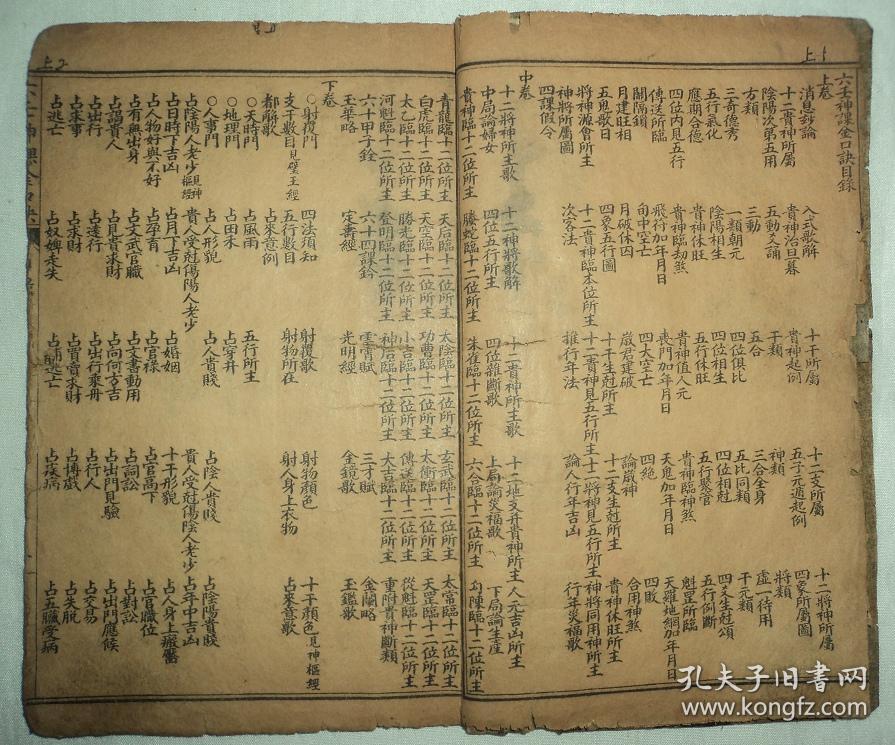 上卜
六壬神課金口訣目錄
上卷
消息玅論 入式歌解 十干所屬 十二支所屬 十二將神所屬
十二貴神所屬 貴神治旦暮 貴神起例 五子元遁起例 四象所屬圖
陰陽次第五用 五動爻誦 干類 神類 將類
方類 三動 五合 三合全身 虛一待用
三奇德秀 一類朝元 四位俱比 五比同類 干元類
五行氣化 陰陽相生 四位相生 四位相尅 四爻生尅頌
應期合德 貴神休旺 五行休旺 五行聚管 五行例斷
四位內見五行 貴神劫煞 貴神值人元 貴神臨神煞 魁罡所臨
傳送所臨 飛符加年月日 喪門加年月日 天鬼加年月日 天羅地網加年月日
關隔鎖 旬中空亡 四大空亡 四絕 四敗
月建旺相 月破休囚 歲君建破 論歲神 合用神煞
五鬼歌日 四象五行圖 十干生尅所主 十二支生尅所主 貴神休旺所主
將神激會所主 十二貴神臨本位所主 十二貴神見五行所主 十二將神見五行所主 神將同用神所主
神將所屬圖 次客法 推行年法 論人行年吉凶 行年災福歌
四課假令
中卷
十二將神所主歌 十二神將歌解 十二貴神所主歌 十二地支并貴神所主 人元吉凶所主
中局論婦女 四位五行所主 四位雜斷歌 上局論災福歌 下局論生產
貴神臨十二位所主 螣蛇臨十二位所主 朱雀臨十二位所主 六合臨十二位所主 勾陳臨十二位所主
上2
青龍臨十二位所主 天后臨十二位所主 太陰臨十二位所主 玄武臨十二位所主 太常臨十二位所主
白虎臨十二位所主 天空臨十二位所主 功曹臨十二位所主 太衝臨十二位所主 天罡臨十二位所主
太乙臨十二位所主 勝光臨十二位所主 小吉臨十二位所主 傳送臨十二位所主 從魁臨十二位所主
河魁臨十二位所主 登明臨十二位所主 神后臨十二位所主 大吉臨十二位所主 重附貴神斷類
六十甲子銓 六十四課鈐 雲霄賦 三才賦 金蘭略
玉華略 定書經 光明經 金鏡歌 玉鑑歌
下卷
○射覆門 四法須知 射覆歌 射物顏色 十干顏色見神樞經
支干數目見璧玉經 五行數目 射物所在 射人身上衣物 占來意歌
都解歌 占來意例
○天時門 占風雨 五行所主
○地理門 占田禾 占穿井
○人事門 占人形貌 占人貴賤 占陰人貴賤 占陰陽貴賤
占陰陽人老少見神樞經 貴人受尅傷陽人老少 貴人受尅傷陰人老少 占年中吉凶
占日時下吉凶 占月下吉凶 占婚姻 十干形貌 占人身上瘢靨
占人物好與不好 占孕育 占官祿 占官高下 占官職位
占有無出身 占文武官職 占文書動用 占詞訟 占對訟
占謁貴人 占見貴求財 占向何方吉 占出門見驗 占出門應候
占出行 占遠行 占出行乘舟 占行人 占交易
占求事 占求財 占買賣求財 占博戲 占失脫
占逃亡 占奴婢走失 占捕逃亡 占疾病 占五臟受病
孔夫子旧書网
www.kongfz.com